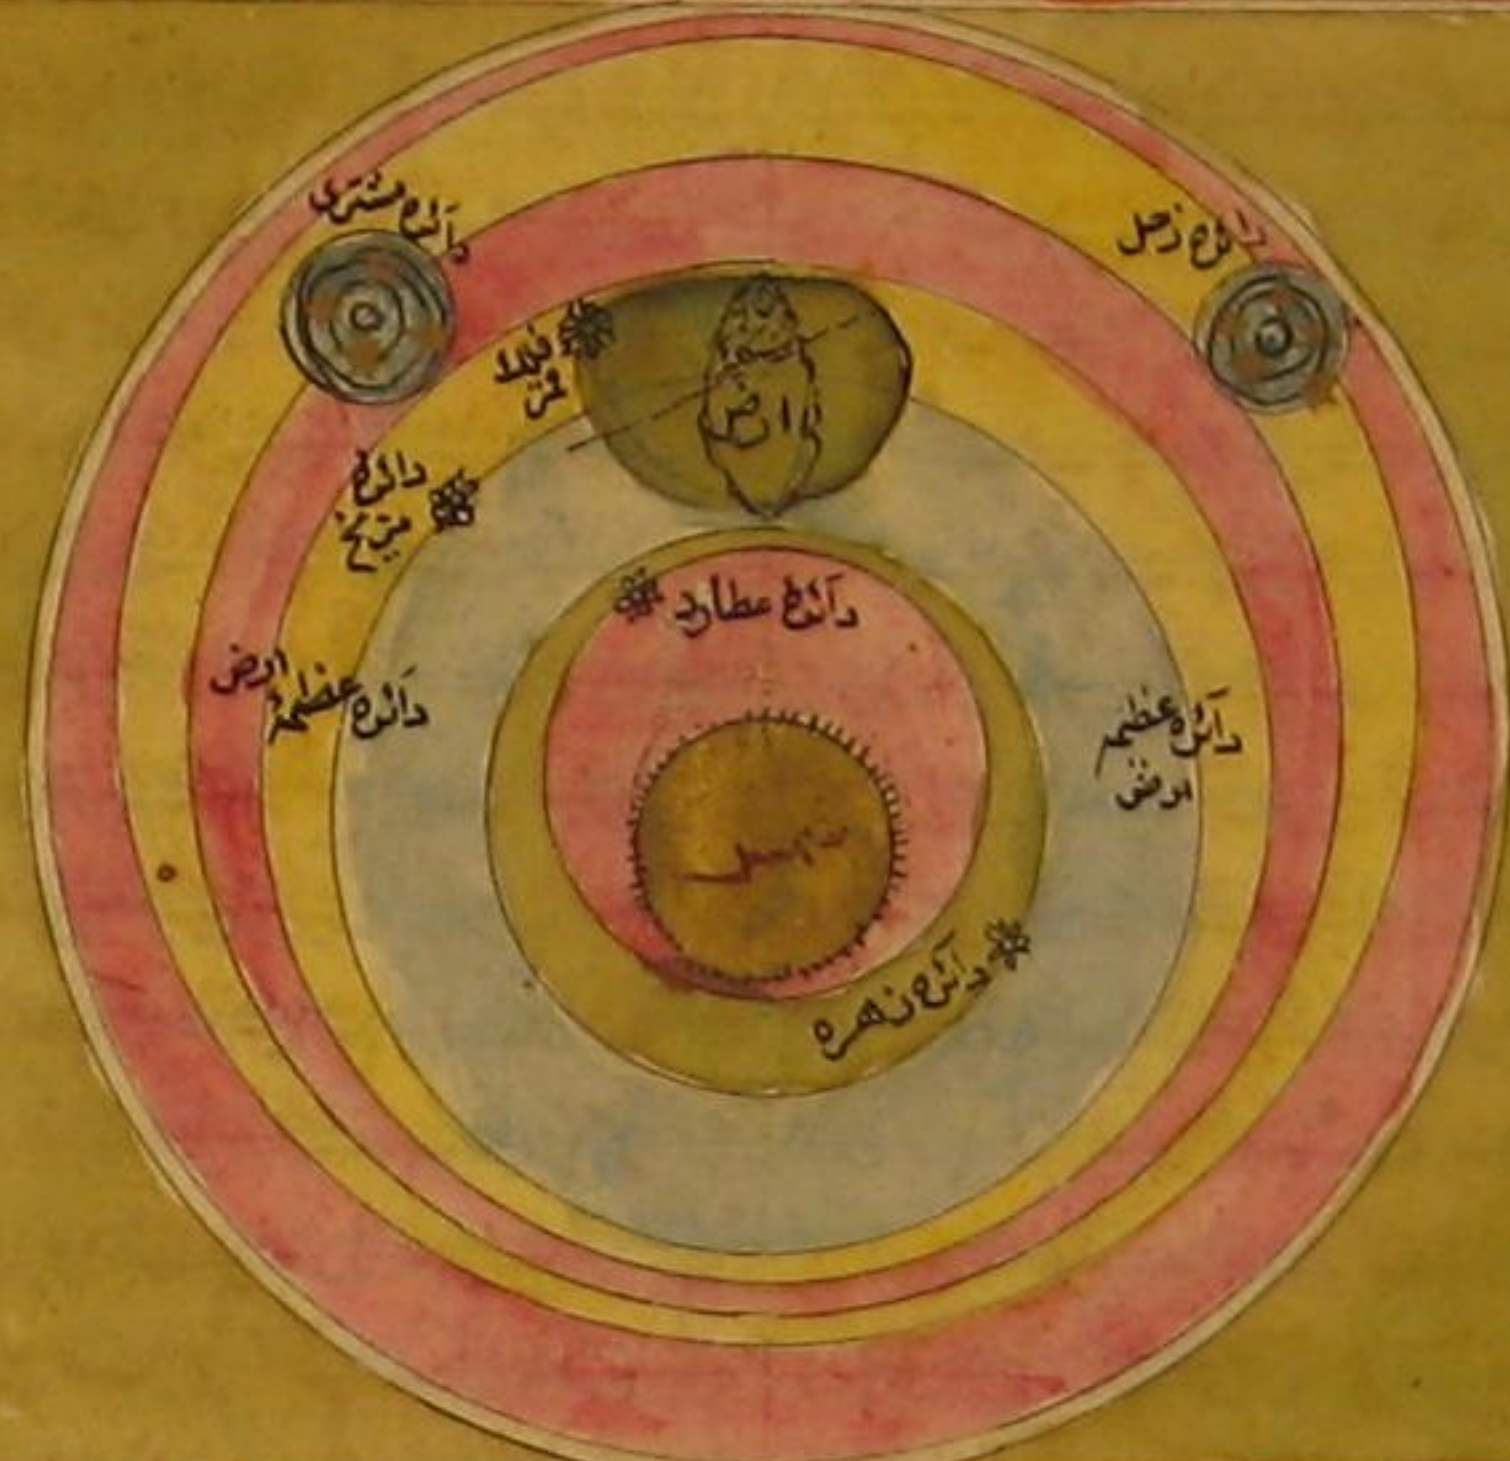 دائره مشتری
دائره زحل
قمر
ارض
دائرهٔ
مریخ
دائرهٔ عطارد
دائره عظیمهٔ ارض
دآئره عظیمهٔ
ارض
شمس
دآئره زهره